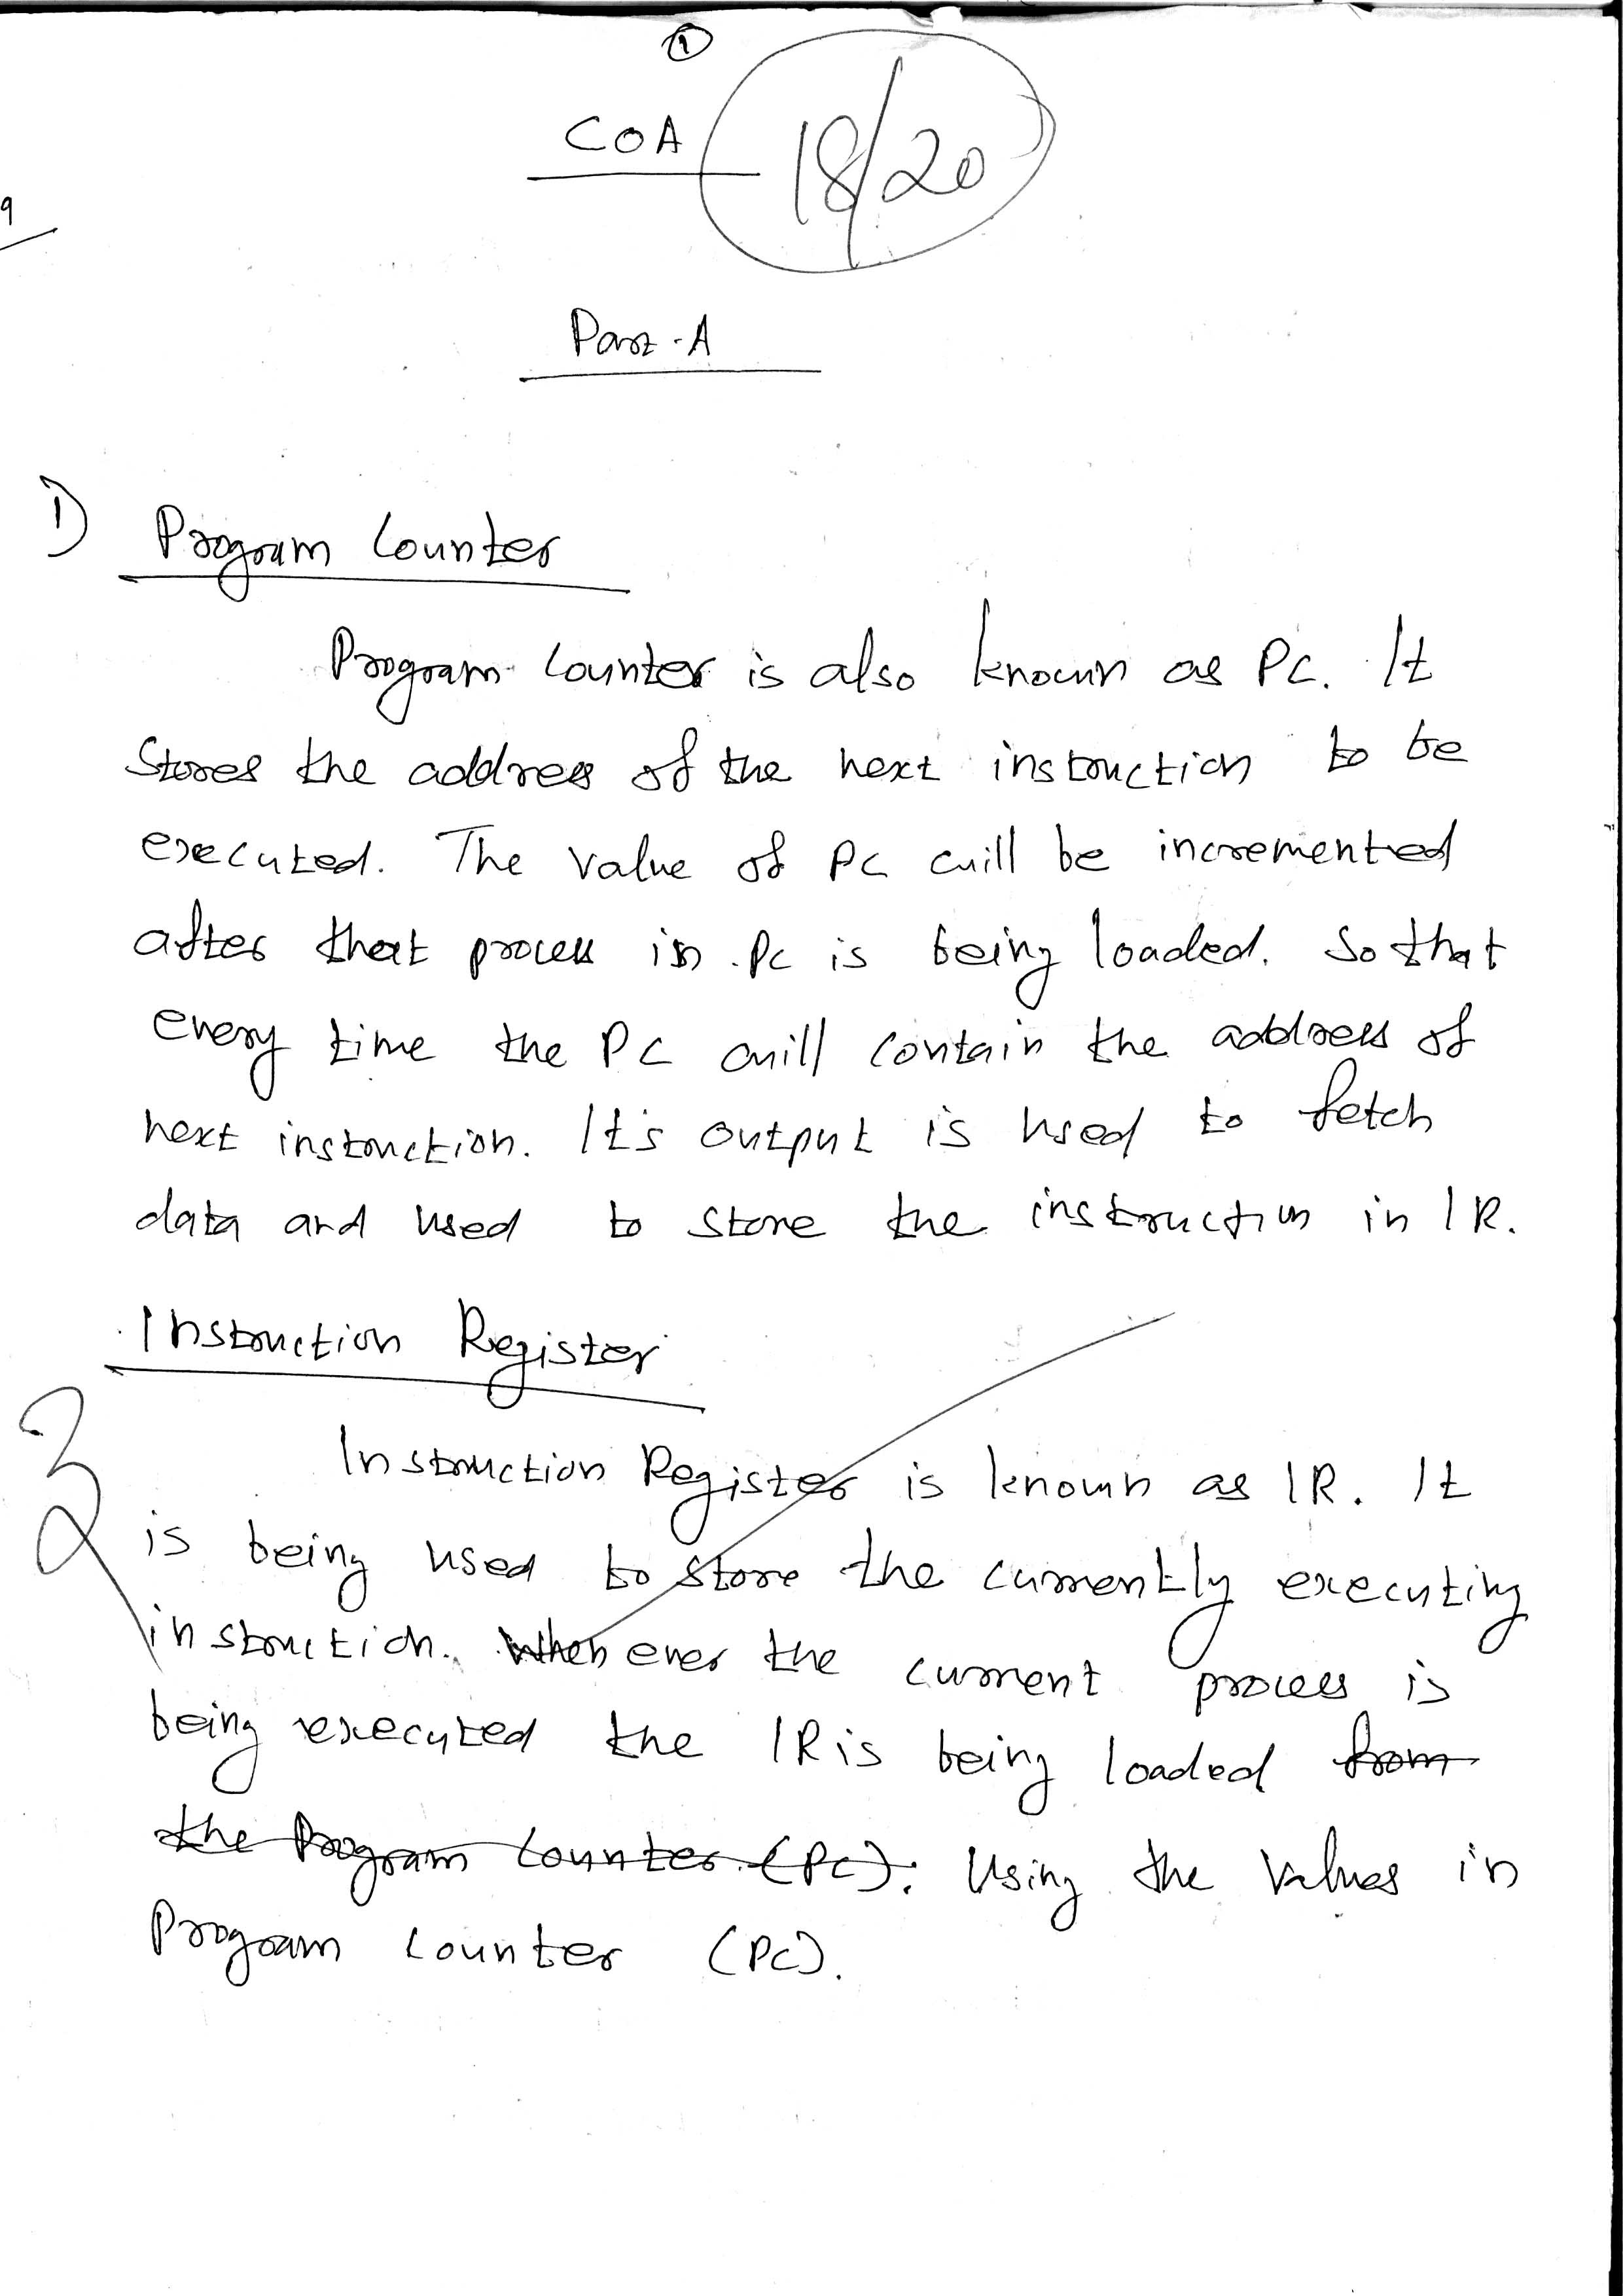 1
COA
18/20
9
Part-A
1) Program Counter
Program Counter is also known as PC. It
Stores the address of the next instruction to be
executed. The value of PC will be incremented
after that process in PC is being loaded. So that
every time the PC will contain the address of
next instruction. It's output is used to fetch
data and used to store the instruction in IR.
Instruction Register
3
Instruction Register is known as IR. It
is being used to store the currently executing
instruction. When ever the current process is
being executed the IR is being loaded from
the Program Counter (PC). Using the values in
Program Counter (PC).